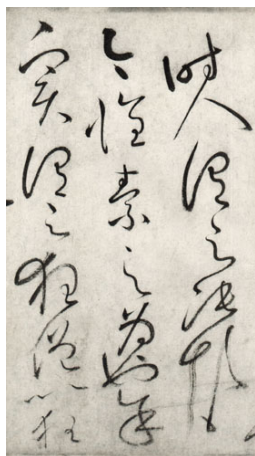 時人謂之張顛
今懷素之為也余
實謂之狂僧以狂